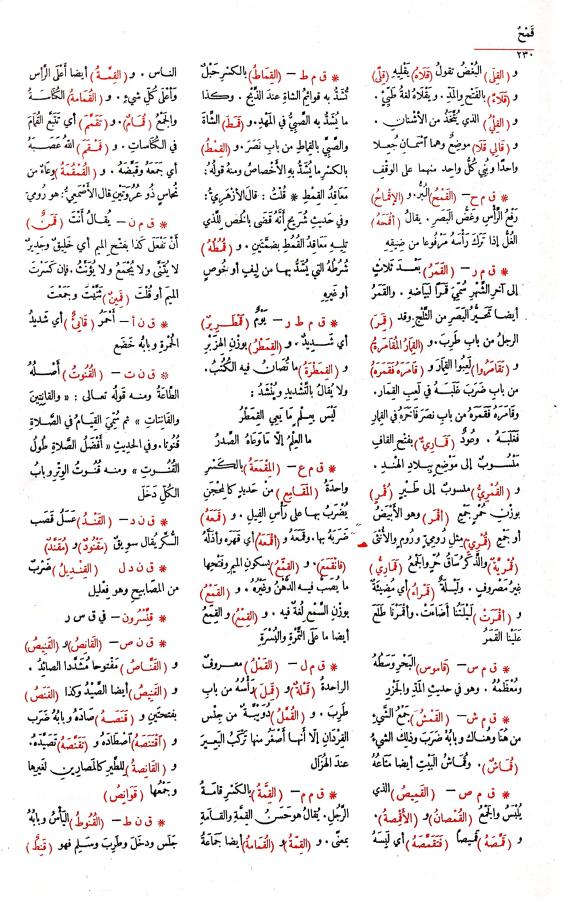 قَمْحٌ
٢٣٠
و (القِلَى) البُغْضُ تقولُ (قَلَاهُ) يَقْلِيهِ (قِلًى)
و (قَلَاءً) بالفَتْحِ والمَدِّ . ويَقْلَاهُ لغةُ طَيِّئٍ .
و (القِلْيُ) الذي يُتَّخَذُ من الأُشْنَانِ .
و (قَالِي قَلَا) مَوْضِعٌ وهما اسْمَانِ جُعِلا
واحدًا وبُنِي كُلُّ واحِدٍ منهما على الوقْفِ
* ق م ح - (القَمْحُ) البُرُّ . و (الإِقْمَاحُ)
رَفْعُ الرَّأْسِ وغَضُّ البَصَرِ . يقالُ (أَقْمَحَهُ)
الغُلُّ إذا تَرَكَ رَأْسَهُ مَرْفُوعا من ضِيقِهِ
* ق م ر - (القَمَرُ) بَعْـدَ ثلاثٍ
إلى آخِرِ الشَّهْرِ سُمِّيَ قَمَرًا لبَيَاضِهِ . والقَمَرُ
أيضا تَحَيُّرُ البَصَرِ من الثَّلْجِ . وقد (قَمِرَ)
الرجلُ من باب طَرِبَ . و (القِمَارُ) (المُقَامَرَةُ)
و (تَقَامَرُوا) لَعِبُوا القِمَارَ و (قَامَرَهُ) (فَقَمَرَهُ)
من باب ضَرَبَ غَلَبَـهُ في لَعِبِ القِمَارِ .
وقَامَرَهُ فَقَمَرَهُ من باب نصَرَ فَاخَرَهُ في القِمَارِ
فَغَلَبَهُ . وعُودٌ (قَمَارِيٌّ) بفَتْحِ القافِ
مَنْسُوبٌ إلى مَوْضِعٍ بِبِلَادِ الهِنْـدِ .
و (القُمْرِيُّ) منسوب إلى طَـيْرٍ (قُمْرٍ)
بوزنِ حُمْرٍ جَمْعُ (أَقْمَرَ) وهو الأَبْيَضُ
أو جَمْعُ (قُمْرِيٍّ) مِثلِ رُومِيٍّ ورُومٍ والأُنْثَى
(قُمْرِيَّةٌ) والذَّكَرُ سَاقُ حُرٍّ والجَمْعُ (قَمَارِيُّ)
غيرُ مَصْروفٍ . ولَيْلَةٌ (قَمْرَاءُ) أي مُضِيئَةٌ
و (أَقْمَرَتْ) لَيْلَتُنَا أضَاءَتْ . وأَقْمَرْنَا طَلَعَ
عَلَيْنَا القَمَرُ
* ق م س - (قَامُوسُ) البَحْرِ وَسَطُهُ
ومُعْظَمُهُ . وهو في حديثِ المَدِّ والجَزْرِ
* ق م ش - (القَمْشُ) جَمْعُ الشَّيْءِ
من هُنا وهُنـاكَ وبابُهُ ضَرَبَ وذلك الشيءُ
(قُمَاشٌ) . وقُمَاشُ البَيْتِ أيضا مَتَاعُهُ
* ق م ص - (القَمِيصُ) الذي
يُلْبَسُ والجَمْعُ (القُمْصَانُ) و (الأَقْمِصَةُ) .
و (قَمَّصَهُ) قَمِيصًا (فَتَقَمَّصَهُ) أي لَبِسَهُ
* ق م ط - (القِمَاطُ) بالكَسْرِ حَبْلٌ
تُشَدُّ به قوائِمُ الشاةِ عندَ الذَّبْحِ . وكذا
ما يُشَدُّ به الصَّبِيُّ في المَهْدِ . و (قَمَطَ) الشَّاةَ
والصَّبِيَّ بالقِمَاطِ من بابِ نَصَرَ . و (القِمْطُ)
بالكَسْرِ ما يُشَدُّ به الأَخْصَاصُ ومنهُ قولُهُ :
مَعَاقِدُ القِمْطِ * قُلْتُ : قال الأزهَرِيُّ :
وفي حديثِ شُرَيْحٍ أَنَّهُ قَضَى بالخُصِّ لِلَّذي
تَلِيـهِ مَعَاقِدُ القُمُطِ بضَمَّتَيْنِ . و (قُمُطُهُ)
شُرُطُهُ التي يُشَدُّ بهـا من لِيفٍ أو خُوصٍ
أو غيرِهِ
* ق م ط ر - يَوْمٌ (قَمْطَرِيرٌ)
أي شَـدِيدٌ . و (القِمَطْرُ) بوزنِ الهِزَبْرِ
و (القِمَطْرَةُ) ما تُصَانُ فيه الكُتُبُ .
ولا يقالُ بالتَّشْديدِ ويُنْشَدُ :
لَيْسَ بِعِلْمٍ مَا يَعِي القِمَطْرُ
ما العِلْمُ إِلَّا مَا وَعَاهُ الصَّدْرُ
* ق م ع - (المِقْمَعَةُ) بالكَسْرِ
واحدةُ (المَقَامِعِ) من حَدِيدٍ كالمِحْجَنِ
يُضْرَبُ بها على رَأْسِ الفِيلِ . و (قَمَعَهُ)
ضَرَبَهُ بها . وقَمَعَهُ و (أَقْمَعَهُ) أي قَهَرَهُ وأَذَلَّهُ
(فَانْقَمَعَ) . و (القِمْعُ) بسكونِ الميم وفتحِها
ما يُصَبُّ فيـه الدُّهْنُ وغَيْرُهُ . و (القَمَعُ)
بوزنِ السَّمْعِ لُغَةٌ فيه . و (القِمْعُ) والقِمَعُ
أيضا ما عَلَى التَّمْرَةِ والبُسْرَةِ
* ق م ل - (القَمْلُ) مَعْـروفٌ
الواحِدةُ (قَمْلَةٌ) و (قَمِلَ) رَأْسُهُ من بابِ
طَرِبَ . و (القُمَّلُ) دُوَيْبَّةٌ من جِنْسِ
القِرْدَانِ إِلَّا أَنها أَصْغَرُ منها تَرْكَبُ البَعِيرَ
عندَ الهُزَالِ
* ق م م - (القِمَّةُ) بالكَسْرِ قَامَةُ
الرَّجُلِ . يُقالُ هو حَسَنُ القِمَّةِ والقَامَةِ
بمعنًى . و (القِمَّةُ) و (القُمَامَةُ) أيضا جَمَاعَةُ
الناس . و (القِمَّةُ) أيضا أعْلَى الرَّأسِ
وأَعْلَى كُلِّ شيءٍ . و (القُمَامَةُ) الكُنَاسَـةُ
والجَمْعُ (قُمَامٌ) . و (تَقَمَّمَ) أي تَتَبَّعَ القُمَامَ
في الكُنَاسَاتِ . و (قَمْقَمَ) اللّهُ عَصَبَـهُ
أي جَمَعَهُ وقَبَضَهُ . و (القُمْقُمَةُ) وِعَاءٌ من
نُحَاسٍ ذُو عُرْوَتَيْنِ قال الأَصْمَعِيُّ : هو رُومِيٌّ
* ق م ن - يُقـالُ أَنْتَ (قَمَنٌ)
أَنْ تَفْعَلَ كذا بفتحِ الميمِ أي خَلِيقٌ وجَدِيرٌ
لا يُثَنَّى ولا يُجْمَعُ ولا يُؤَنَّثُ . فإن كَسَرْتَ
الميمَ أو قُلْتَ (قَمِينٌ) ثَنَّيْتَ وجَمَعْتَ
* ق ن أ - أَحْمَرُ (قَانِئٌ) أي شَدِيدُ
الحُمْرَةِ وبابُهُ خَضَعَ
* ق ن ت - (القُنُوتُ) أَصْـلُهُ
الطَّاعَةُ ومنه قولُهُ تعالى : « والقانِتِينَ
والقانِتَاتِ » ثم سُمِّيَ القِيَـامُ في الصَّلاةِ
قُنُوتا . وفي الحديث « أَفْضَلُ الصَّلَاةِ طُولُ
القُنُـوتِ » ومنـه قُنُـوتُ الوِتْرِ وبابُ
الكُلِّ دَخَلَ
* ق ن د - (القَنْـدُ) عَسَلُ قَصَبِ
السُّكَّرِ يُقالُ سويقٌ (مَقْنُودٌ) و (مُقَنَّدٌ)
* ق ن د ل (القِنْدِيلُ) ضَرْبٌ
من المصابيحِ وهو فِعْلِيلٌ
* قِنَّسْرُونَ - في ق س ر
* ق ن ص - (القَانِصُ) و (القَنِيصُ)
و (القَنَّـاصُ) مَفْتُوحا مُشَدَّدا الصائدُ .
و (القَنِيصُ) أيضا الصَّيْدُ وكذا (القَنَصُ)
بفَتْحَتَينِ و (قَنَصَـهُ) صَادَهُ وبابُهُ ضَرَبَ
و (اقْتَنَصَهُ) اصْطَادَهُ و (تَقَنَّصَهُ) تَصَيَّدَهُ .
و (القَانِصَةُ) للطَّيْرِ كالمَصَارِينِ لغَيرِها
وجمعُها (قَوَانِصُ)
* ق ن ط - (القُنُوطُ) اليَأْسُ وبابُهُ
جَلَسَ ودخَلَ وطَرِبَ وسَلِمَ فهو (قَنِطٌ)